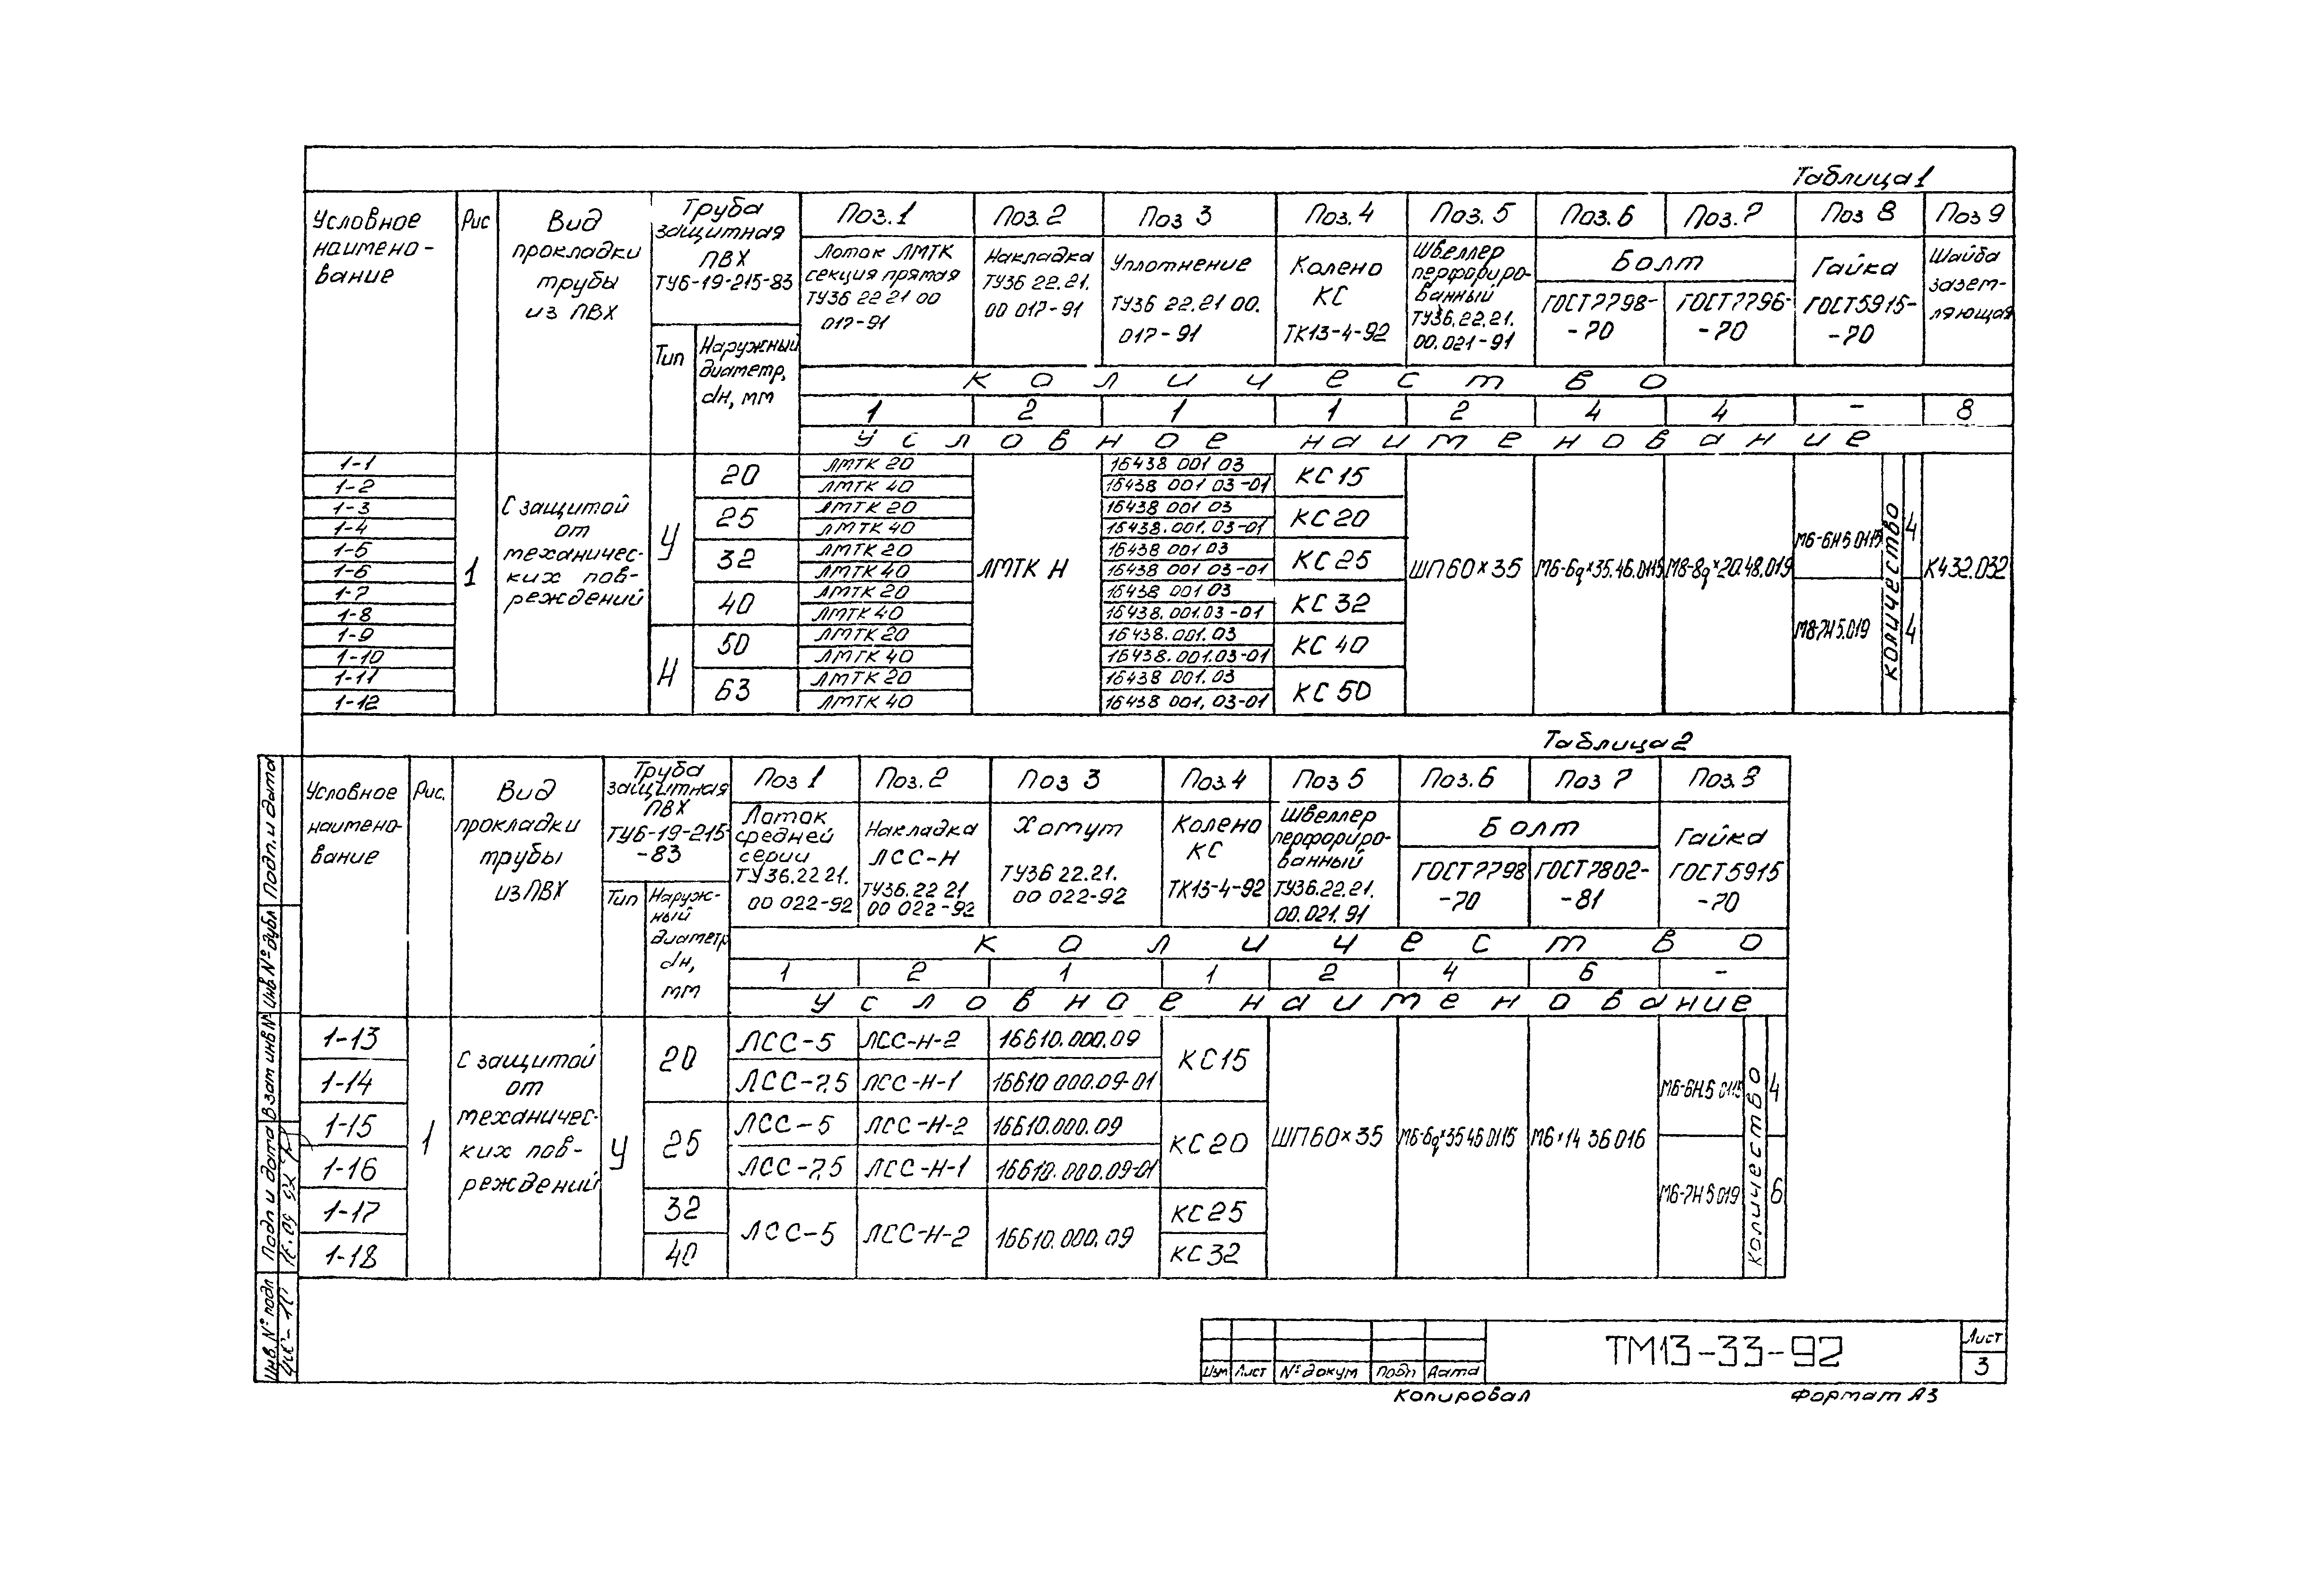 Таблица 1
Условное наимено-вание
Рис
Вид прокладки трубы из ПВХ
Труба защитная ПВХ ТУ6-19-215-83
Тип
Наружный диаметр, dн, мм
Поз.1 Поз.2 Поз 3 Поз.4 Поз.5 Поз.6 Поз.7 Поз 8 Поз 9
Лоток ЛМТК секция прямая ТУ36 22 21 00 017-91
Накладка ТУ36 22.21. 00 017-91
Уплотнение ТУ36 22.21 00. 017-91
Колено КС ТК13-4-92
Швеллер перфориро-ванный ТУ36.22.21. 00.021-91
Болт
ГОСТ7798-70
ГОСТ7796-70
Гайка ГОСТ5915-70
Шайба зазем-ляющая
Количество
1 2 1 1 2 4 4 - 8
Условное наименование
1-1 ЛМТК 20 16438 001 03
1-2 ЛМТК 40 16438 001 03-01
20 КС15
1-3 ЛМТК 20 16438 001 03
1-4 ЛМТК 40 16438.001.03-01
25 КС20
1-5 ЛМТК 20 16438 001 03
1-6 ЛМТК 40 16438 001 03-01
32 КС25
1-7 ЛМТК 20 16438 001 03
1-8 ЛМТК 40 16438.001.03-01
40 КС32
1-9 ЛМТК 20 16438.001.03
1-10 ЛМТК 40 16438.001.03-01
50 КС40
1-11 ЛМТК 20 16438 001.03
1-12 ЛМТК 40 16438 001, 03-01
63 КС50
1
С защитой от механичес-ких пов-реждений
У
Н
ЛМТК Н
ШП60×35
М6-6g×35.46.0115
М8-8g×20.48.019
М6-6Н5 0115
М8-7Н5.019
количество
4
4
К432.032
Таблица 2
Условное наимено-вание
Рис.
Вид прокладки трубы из ПВХ
Труба защитная ПВХ ТУ6-19-215-83
Тип
Наруж-ный диаметр dн, мм
Поз 1 Поз.2 Поз 3 Поз.4 Поз 5 Поз.6 Поз 7 Поз.8
Лоток средней серии ТУ36.22 21. 00 022-92
Накладка ЛСС-Н ТУ36.22 21 00 022-92
Хомут ТУ36 22.21. 00 022-92
Колено КС ТК13-4-92
Швеллер перфориро-ванный ТУ36.22.21. 00.021.91
Болт
ГОСТ7798-70
ГОСТ7802-81
Гайка ГОСТ5915-70
Количество
1 2 1 1 2 4 6 -
Условное наименование
1-13 ЛСС-5 ЛСС-Н-2 16610.000.09
1-14 ЛСС-7,5 ЛСС-Н-1 16610 000.09-01
20 КС15
1-15 ЛСС-5 ЛСС-Н-2 16610.000.09
1-16 ЛСС-7,5 ЛСС-Н-1 16610.000.09-01
25 КС20
1-17 32 КС25
1-18 40 КС32
ЛСС-5 ЛСС-Н-2 16610.000.09
1
С защитой от механичес-ких пов-реждений
У
ШП60×35
М6-6g×35 46 0115
М6×14 36 016
М6-6Н.5 0115
М6-7Н 5 019
количество
4
6
Подп.и дата
Инв №дубл
Взам инв №
Подп и дата
Инв.№ подл
ТМ13-33-92
Лист
3
Изм Лист №докум Подп Дата
Копировал
Формат А3